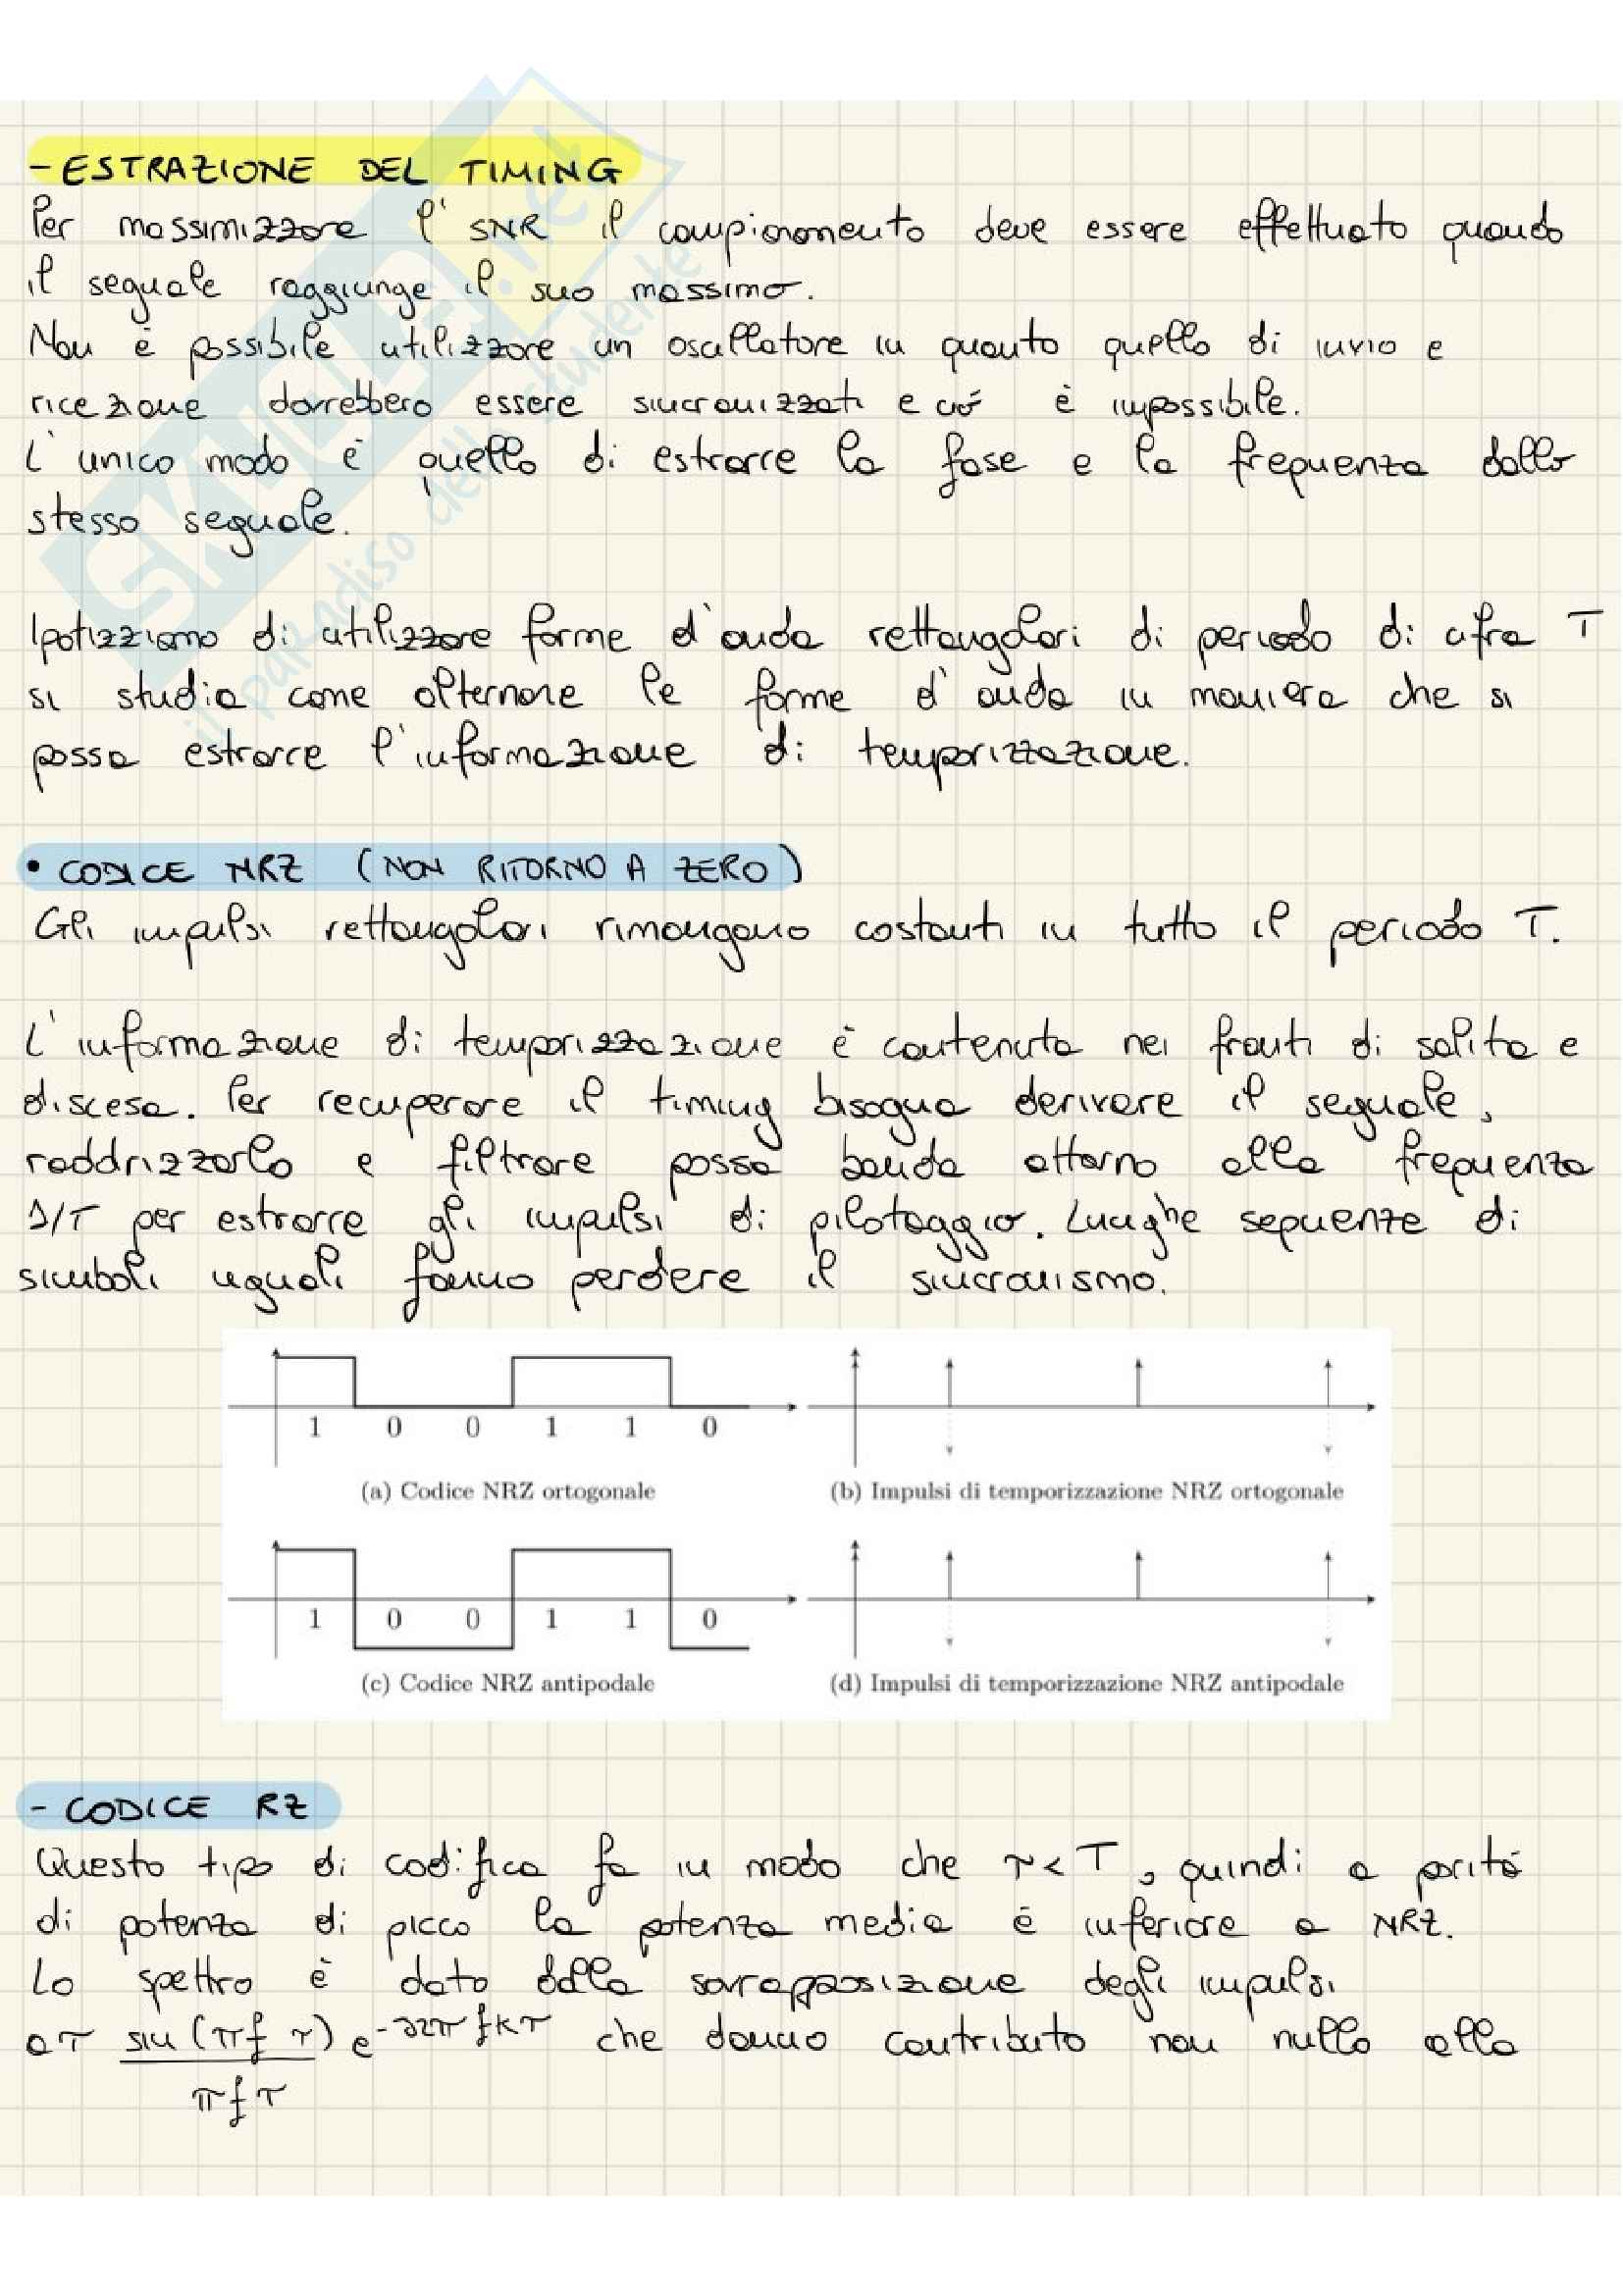 - ESTRAZIONE DEL TIMING
Per massimizzare l'SNR il campionamento deve essere effettuato quando
il segnale raggiunge il suo massimo.
Non è possibile utilizzare un oscillatore in quanto quello di invio e
ricezione dovrebbero essere sincronizzati e ciò è impossibile.
L'unico modo è quello di estrarre la fase e la frequenza dallo
stesso segnale.
Ipotizziamo di utilizzare forme d'onda rettangolari di periodo di cifra T
si studia come alternare le forme d'onda in maniera che si
possa estrarre l'informazione di temporizzazione.
• CODICE NRZ (NON RITORNO A ZERO)
Gli impulsi rettangolari rimangono costanti in tutto il periodo T.
L'informazione di temporizzazione è contenuta nei fronti di salita e
discesa. Per recuperare il timing bisogna derivare il segnale,
raddrizzarlo e filtrare passa banda attorno alla frequenza
1/T per estrarre gli impulsi di pilotaggio. Lunghe sequenze di
simboli uguali fanno perdere il sincronismo.
1 0 0 1 1 0
(a) Codice NRZ ortogonale (b) Impulsi di temporizzazione NRZ ortogonale
1 0 0 1 1 0
(c) Codice NRZ antipodale (d) Impulsi di temporizzazione NRZ antipodale
- CODICE RZ
Questo tipo di codifica fa in modo che τ < T, quindi a parità
di potenza di picco la potenza media è inferiore a NRZ.
Lo spettro è dato dalla sovrapposizione degli impulsi
aτ sin(πfτ) e^-j2πfkT che danno contributo non nullo alla
πfτ
SKUOLA.net
il paradiso dello studente